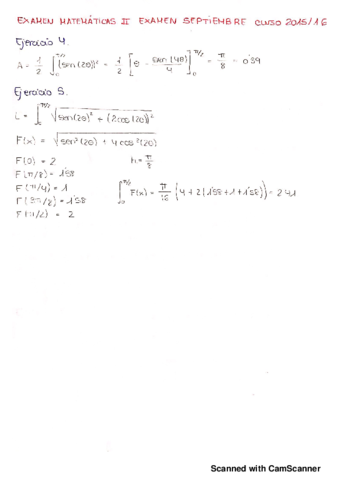 EXAMEN MATEMÁTICAS II EXAMEN SEPTIEMBRE CURSO 2015/16
Ejercicio 4.
A = 1/2 ∫₀^π/2 (sen(2θ))² = 1/2 [θ - sen(4θ)/4]₀^π/2 = π/8 = 0'39
Ejercicio 5.
L = ∫₀^π/2 √(sen(2θ)² + (2cos(2θ))²
F(x) = √(sen²(2θ) + 4cos²(2θ)
F(0) = 2 h = π/8
F(π/8) = 1'58
F(π/4) = 1 ∫₀^π/2 F(x) = π/16 (4 + 2(1'58 + 1 + 1'58)) = 2'41
F(3π/8) = 1'58
F(π/2) = 2
Scanned with CamScanner